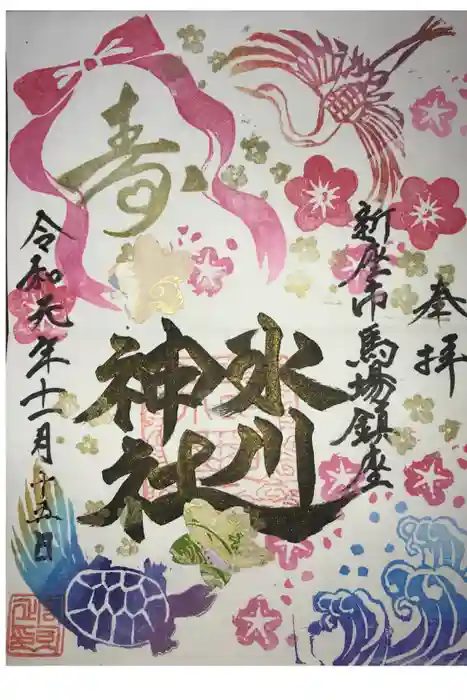 奉拝
新座市馬場鎮座
氷川
神社
寿
令和元年十一月廿五日